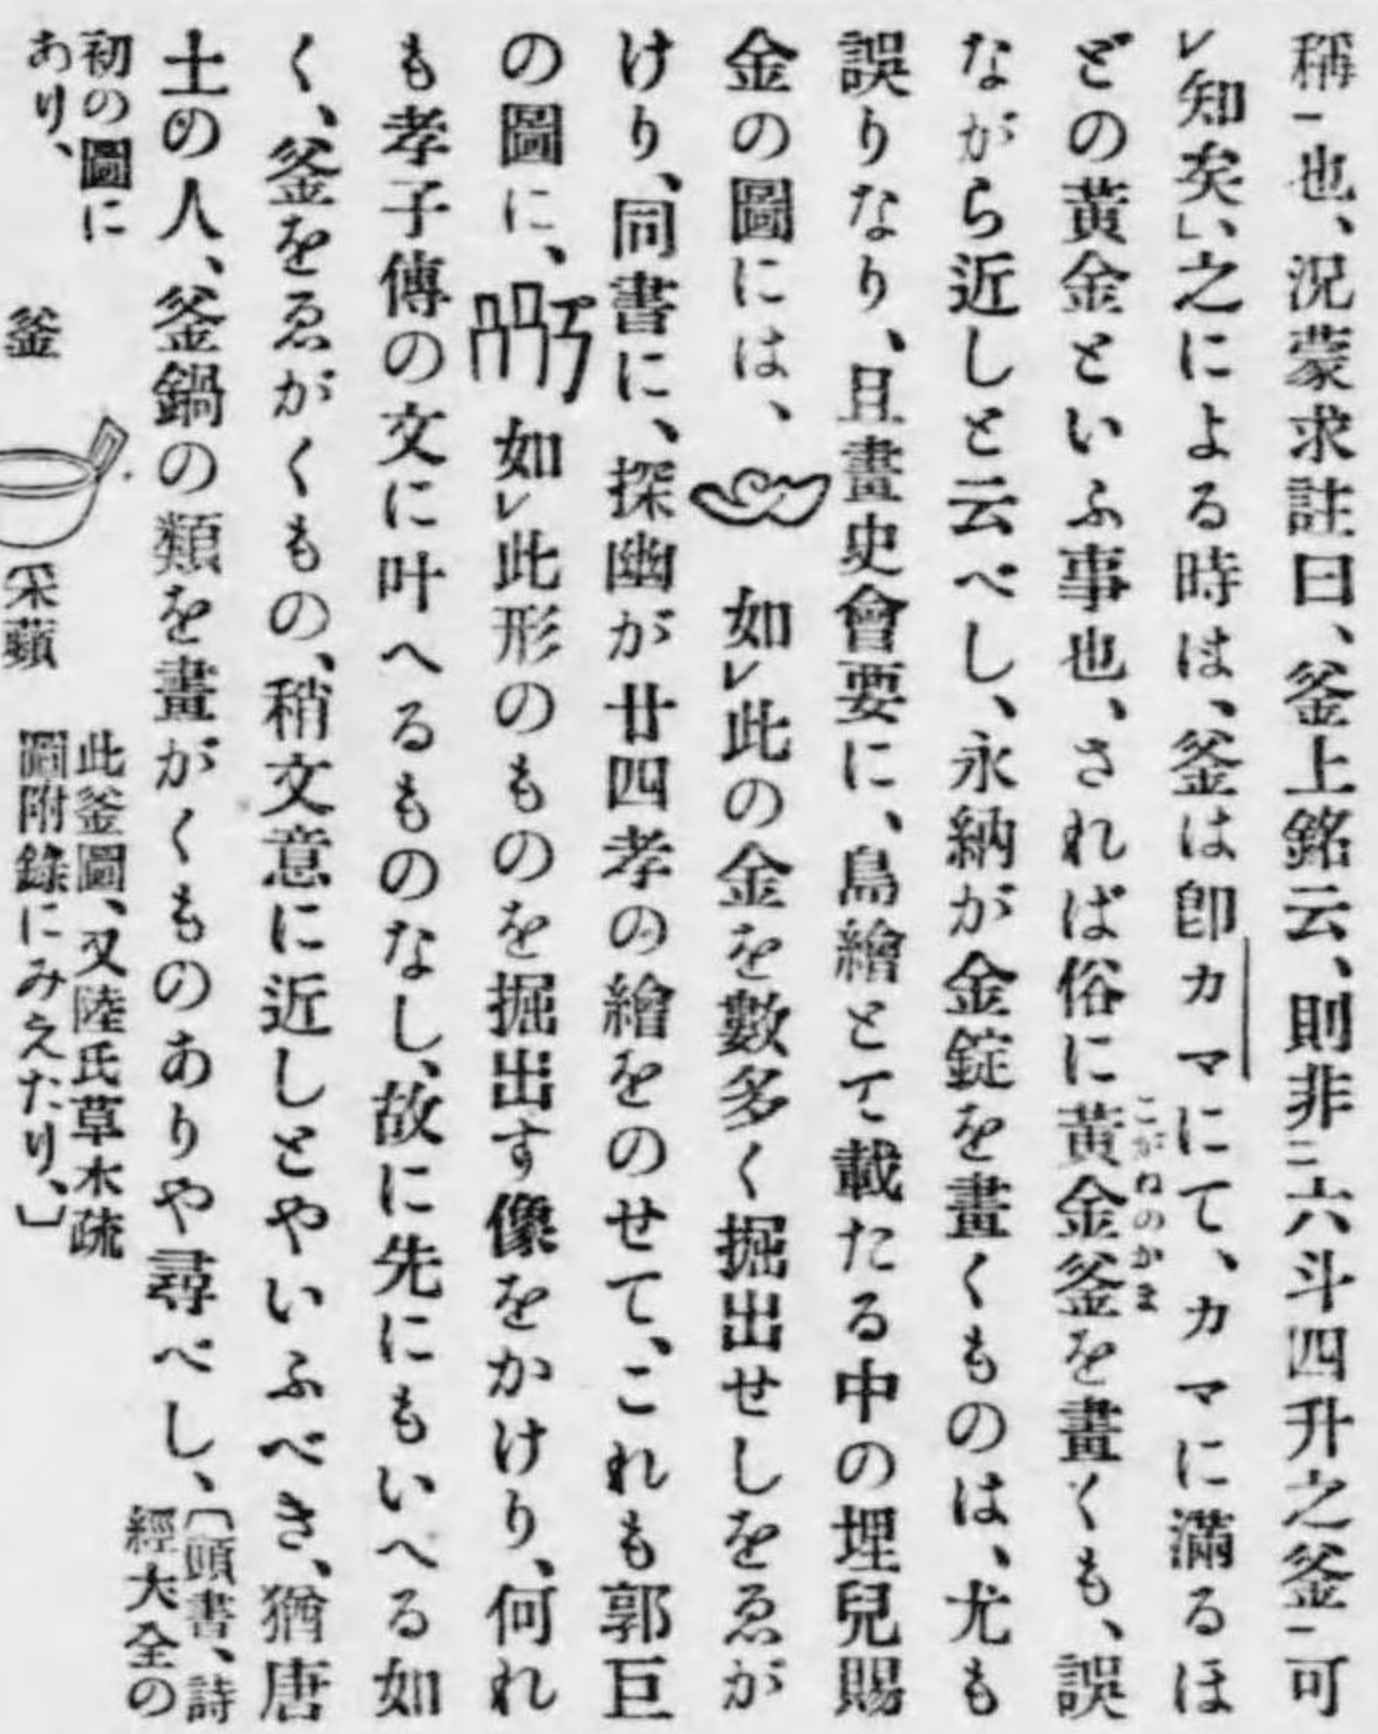 稱一也、況蒙求註曰、釜上銘云、則非二六斗四升之釜一可
レ知矣」、之による時は、釜は卽カマにて、カマに滿るほ
どの黄金といふ事也、されば俗に黄金釜こがねのかまを畫くも、誤
ながら近しと云べし、永納が金錠を畫くものは、尤も
誤りなり、且畫史會要に、鳥繪とて載たる中の埋兒賜
金の圖には、如レ此の金を數多く掘出せしをゑが
けり、同書に、探幽が廿四孝の繪をのせて、これも郭巨
の圖に、如レ此形のものを掘出す像をかけり、何れ
も孝子傳の文に叶へるものなし、故に先にもいへる如
く、釜をゑがくもの、稍文意に近しとやいふべき、猶唐
土の人、釜鍋の類を畫がくものありや尋べし、〔頭書、詩
經大全の
初の圖に
あり、
釜
采蘋
此釜圖、又陸氏草木疏
圖附錄にみえたり、〕